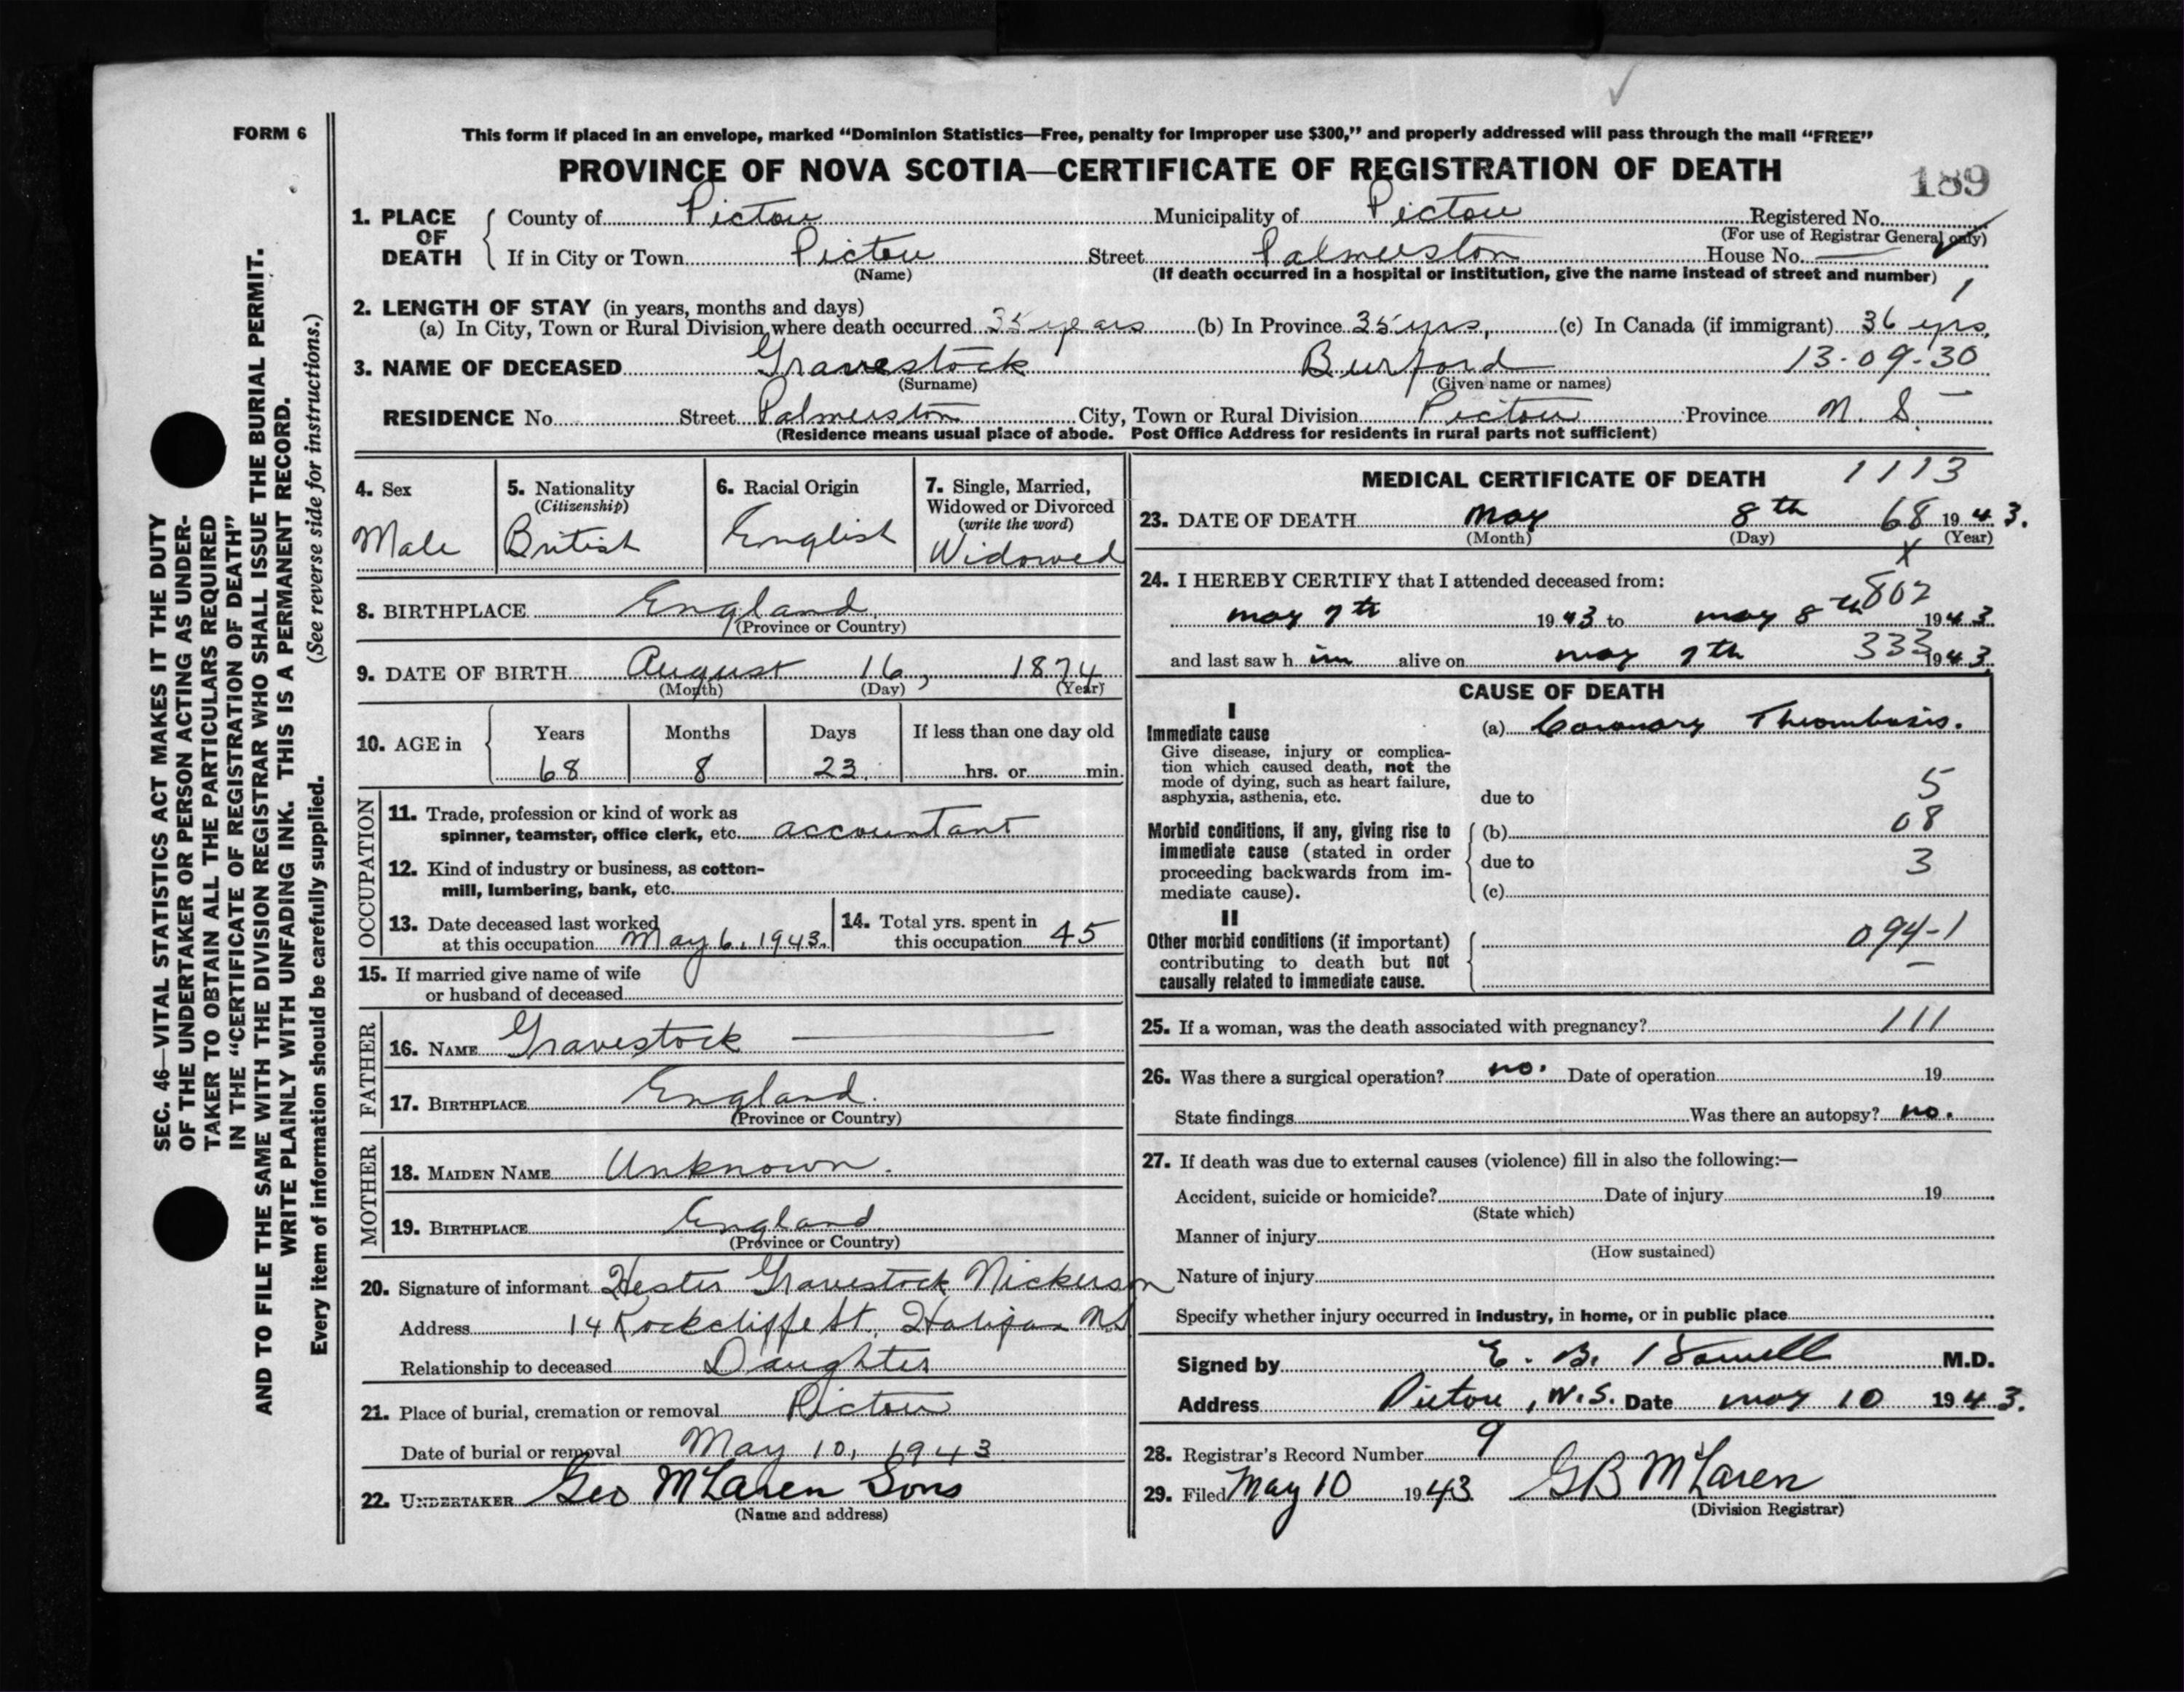 FORM 6
This form if placed in an envelope, marked “Dominion Statistics—Free, penalty for improper use $300,” and properly addressed will pass through the mail “FREE”
PROVINCE OF NOVA SCOTIA—CERTIFICATE OF REGISTRATION OF DEATH
189
1. PLACE OF DEATH
County of Pictou Municipality of Pictou Registered No.
(For use of Registrar General only)
If in City or Town Pictou Street Palmerston House No. —
(Name) (If death occurred in a hospital or institution, give the name instead of street and number)
1
2. LENGTH OF STAY (in years, months and days)
(a) In City, Town or Rural Division where death occurred 35 years (b) In Province 35 yrs, (c) In Canada (if immigrant) 36 yrs.
3. NAME OF DECEASED Gravestock Burford 13-09-30
(Surname) (Given name or names)
RESIDENCE No. Street Palmerston City, Town or Rural Division Pictou Province N. S. —
(Residence means usual place of abode. Post Office Address for residents in rural parts not sufficient)
4. Sex
Male
5. Nationality
(Citizenship)
British
6. Racial Origin
English
7. Single, Married,
Widowed or Divorced
(write the word)
Widowed
8. BIRTHPLACE England
(Province or Country)
9. DATE OF BIRTH August 16, 1874
(Month) (Day) (Year)
10. AGE in
Years Months Days If less than one day old
68 8 23 hrs. or min.
OCCUPATION
11. Trade, profession or kind of work as
spinner, teamster, office clerk, etc. accountant
12. Kind of industry or business, as cotton-
mill, lumbering, bank, etc.
13. Date deceased last worked
at this occupation May 6, 1943.
14. Total yrs. spent in
this occupation 45
15. If married give name of wife
or husband of deceased
FATHER
16. NAME Gravestock —
17. BIRTHPLACE England.
(Province or Country)
MOTHER
18. MAIDEN NAME Unknown.
19. BIRTHPLACE England
(Province or Country)
20. Signature of informant Hester Gravestock Nickerson
Address 14 Rockcliffe St. Halifax NS
Relationship to deceased Daughter
21. Place of burial, cremation or removal Pictou
Date of burial or removal May 10, 1943
22. UNDERTAKER Geo McLaren Sons
(Name and address)
MEDICAL CERTIFICATE OF DEATH 1113
23. DATE OF DEATH May 8th 68 1943.
(Month) (Day) (Year)
X
24. I HEREBY CERTIFY that I attended deceased from:
802
may 7th 1943 to may 8th 1943.
and last saw him alive on may 7th 333 1943.
CAUSE OF DEATH
I
Immediate cause
Give disease, injury or complica-
tion which caused death, not the
mode of dying, such as heart failure,
asphyxia, asthenia, etc.
(a) Coronary Thrombosis.
due to 5
Morbid conditions, if any, giving rise to
immediate cause (stated in order
proceeding backwards from im-
mediate cause).
(b) 08
due to 3
(c)
II
Other morbid conditions (if important)
contributing to death but not
causally related to immediate cause.
094-1
25. If a woman, was the death associated with pregnancy? 111
26. Was there a surgical operation? no. Date of operation 19
State findings Was there an autopsy? no.
27. If death was due to external causes (violence) fill in also the following:—
Accident, suicide or homicide? Date of injury 19
(State which)
Manner of injury
(How sustained)
Nature of injury
Specify whether injury occurred in industry, in home, or in public place
Signed by E. B. M.D.
Address Pictou, N.S. Date may 10 1943.
28. Registrar's Record Number 9
29. Filed May 10 1943 GB McLaren
(Division Registrar)
SEC. 46—VITAL STATISTICS ACT MAKES IT THE DUTY
OF THE UNDERTAKER OR PERSON ACTING AS UNDER-
TAKER TO OBTAIN ALL THE PARTICULARS REQUIRED
IN THE “CERTIFICATE OF REGISTRATION OF DEATH”
AND TO FILE THE SAME WITH THE DIVISION REGISTRAR WHO SHALL ISSUE THE BURIAL PERMIT.
WRITE PLAINLY WITH UNFADING INK. THIS IS A PERMANENT RECORD.
Every item of information should be carefully supplied. (See reverse side for instructions.)